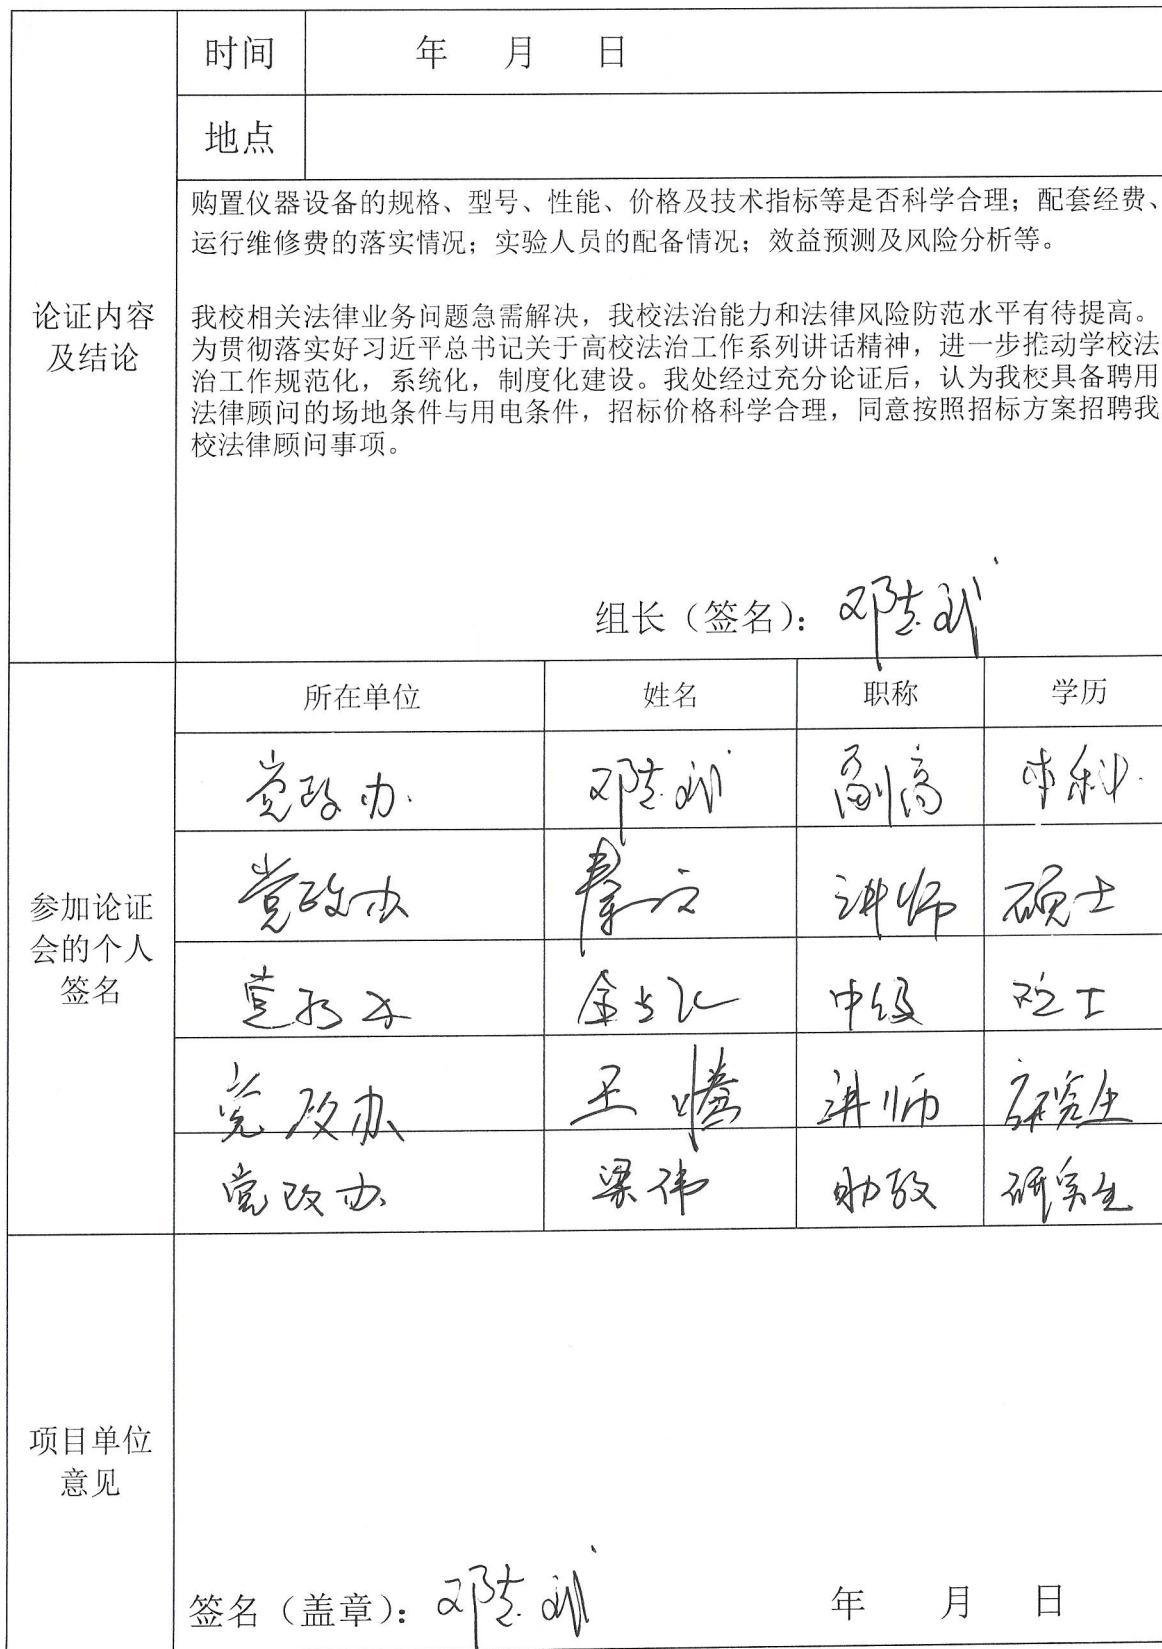 时间 年 月 日
地点
购置仪器设备的规格、型号、性能、价格及技术指标等是否科学合理；配套经费、
运行维修费的落实情况；实验人员的配备情况；效益预测及风险分析等。
论证内容
及结论
我校相关法律业务问题急需解决，我校法治能力和法律风险防范水平有待提高。
为贯彻落实好习近平总书记关于高校法治工作系列讲话精神，进一步推动学校法
治工作规范化，系统化，制度化建设。我处经过充分论证后，认为我校具备聘用
法律顾问的场地条件与用电条件，招标价格科学合理，同意按照招标方案招聘我
校法律顾问事项。
组长（签名）：邓志武
所在单位 姓名 职称 学历
党政办 邓志武 副高 本科
参加论证
会的个人
签名
党政办 讲师 硕士
党政办 中级 硕士
党政办 王 讲师 研究生
党政办 梁伟 助教 研究生
项目单位
意见
签名（盖章）：邓志武 年 月 日